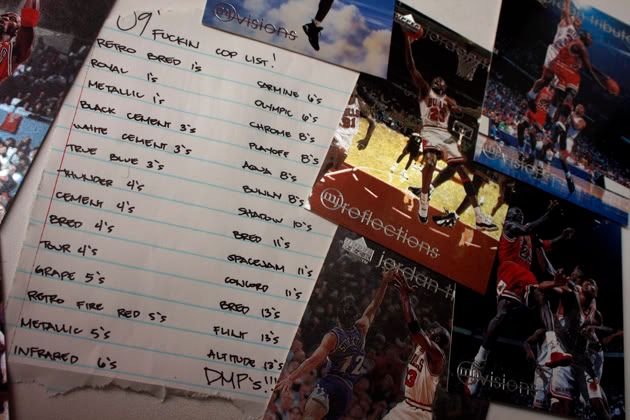 FUCKIN COP LIST!
RETRO BRED 1's
ROYAL 1's
METALLIC 1's
BLACK CEMENT 3's
WHITE CEMENT 3's
TRUE BLUE 3's
THUNDER 4's
CEMENT 4's
BRED 4's
TOUR 4's
GRAPE 5's
RETRO FIRE RED 5's
METALLIC 5's
INFRARED 6's
CARMINE 6's
OLYMPIC 6's
CHROME 8's
PLAYOFF 8's
AQUA 8's
BUNNY 8's
SHADOW 10's
BRED 11's
SPACEJAM 11's
CONCORD 11's
BRED 13's
FLINT 13's
ALTITUDE 13's
DMP's!!!
mj visions
mj reflections
23
jordan
12
tribute
visions
mj visions